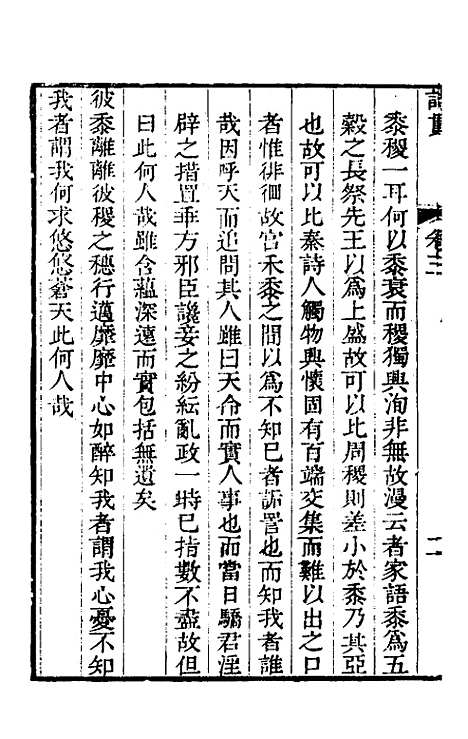 詩貫 卷三 二
黍稷一耳何以黍衰而稷獨興洵非無故漫云者家語黍為五
穀之長祭先王以為上盛故可以比周稷則差小於黍乃其亞
也故可以比秦詩人觸物興懷固有百端交集而難以出之口
者惟徘徊故宮禾黍之間以為不知已者詬詈也而知我者誰
哉因呼天而追問其人雖曰天命而實人事也而當日驕君淫
辟之措置乖方邪臣讒妾之紛紜亂政一時已指數不盡故但
曰此何人哉雖含蘊深遠而實包括無遺矣
彼黍離離彼稷之穗行邁靡靡中心如醉知我者謂我心憂不知
我者謂我何求悠悠蒼天此何人哉